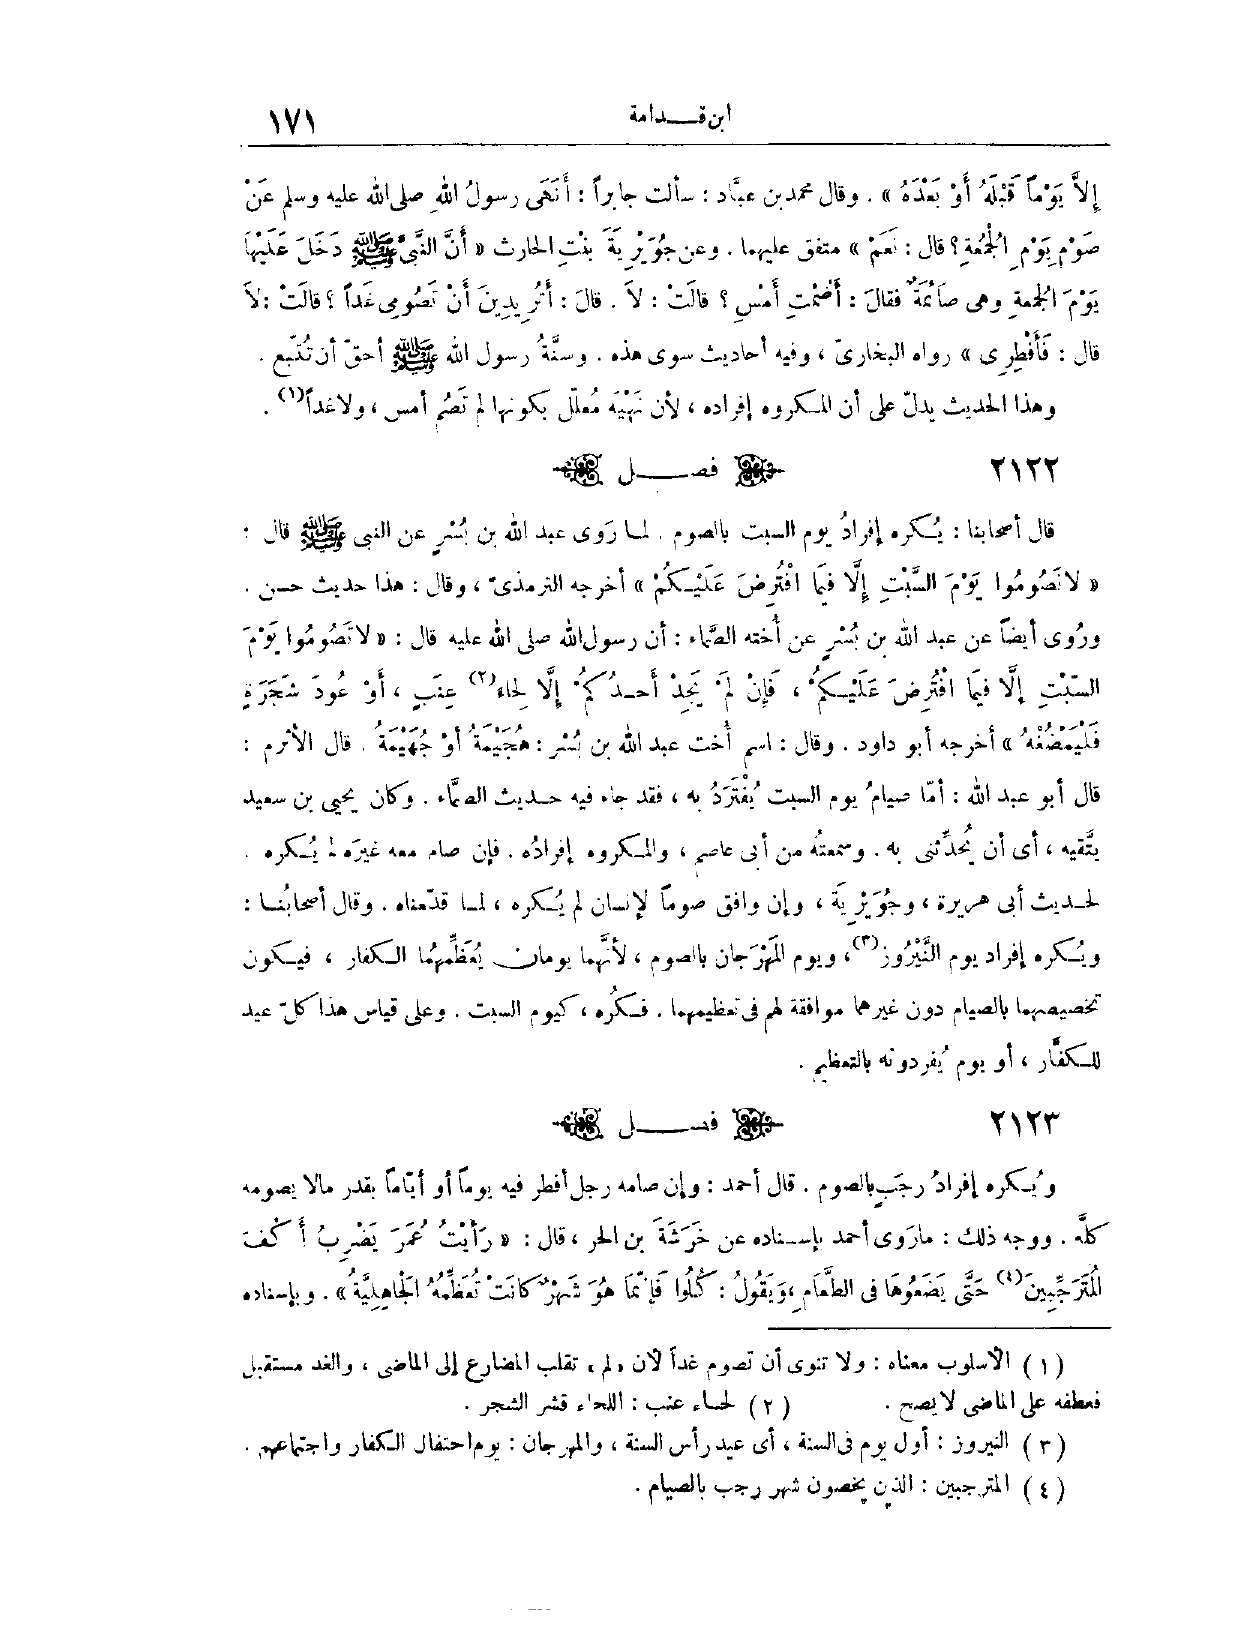 ابن قدامة ١٧١
إِلاَّ يَوْماً قَبْلَهُ أَوْ بَعْدَهُ » . وقال محمد بن عبَّاد : سألت جابراً : أَنَهَى رسولُ اللهِ صلى الله عليه وسلم عَنْ
صَوْمِ يَوْمِ الْجُمُعَةِ؟ قال : نَعَمْ » متفق عليهما . وعن جُوَيْرِيَةَ بنْتِ الحارث « أَنَّ النَّبِيَّ ﷺ دَخَلَ عَلَيْهَا
يَوْمَ الْجُمعةِ وهى صَائمَةٌ فقالَ : أَصُمْتِ أَمْسِ ؟ قالَتْ : لاَ . قالَ : أَتُرِيدِينَ أَنْ تَصُومِى غَداً ؟ قالَتْ : لاَ
قال : فَأَفْطِرِى » رواه البخارىّ ، وفيه أحاديث سوى هذه . وسنَّةُ رسول الله ﷺ أحقّ أن تُتّبع .
وهذا الحديث يدلّ على أن المكروه إفراده ، لأن نَهْيَه مُعلّل بكونها لم تَصُم أمس ، ولا غداً(١) .
٢١٢٢ فصل
قال أصحابنا : يُكره إفرادُ يوم السبت بالصوم . لما رَوى عبد الله بن بُسْرٍ عن النبى ﷺ قال :
« لا تَصُومُوا يَوْمَ السَّبْتِ إِلَّا فِيمَا افْتُرِضَ عَلَيْكُمْ » أخرجه الترمذىّ ، وقال : هذا حديث حسن .
ورُوى أيضاً عن عبد الله بن بُسْرٍ عن أُخته الصَّماء : أن رسول الله صلى الله عليه قال : « لا تَصُومُوا يَوْمَ
السَّبْتِ إِلَّا فيمَا افْتُرِضَ عَلَيْكُمْ ، فَإِنْ لَمْ يَجِدْ أَحدُكُمْ إِلَّا لِحَاء(٢) عِنَبٍ ، أَوْ عُودَ شَجَرَةٍ
فَلْيَمْضُغْهُ » أخرجه أبو داود . وقال : اسم أُخت عبد الله بن بُسْر : هُجَيْمَةُ أوْ جُهَيْمَةُ . قال الأثرم :
قال أبو عبد الله : أمّا صيامُ يوم السبت يُفْتَرَدُ به ، فقد جاء فيه حديث الصمَّاء . وكان يحيى بن سعيد
يتَّقيه ، أى أن يُحدِّثنى به . وسمعتُه من أبى عاصم ، والمكروه إفرادُه . فإن صام معه غيرَه لم يُكره .
لحديث أبى هريرة ، وجُوَيْرِيَة ، وإن وافق صوماً لإنسان لم يُكره ، لما قدّمناه . وقال أصحابُنا :
ويُكره إفراد يوم النَّيْرُوز(٣) ، ويوم المَهْرَجان بالصوم ، لأنَّهما يومان يُعَظِّمهُما الكفار ، فيكون
تخصيصهما بالصيام دون غيرهما موافقة لهم فى تعظيمهما . فكُره ، كيوم السبت . وعلى قياس هذا كلّ عيد
للكفَّار ، أو يوم يُفردونه بالتعظيم .
٢١٢٣ فصل
ويُكره إفرادُ رجَبٍ بالصوم . قال أحمد : وإن صامه رجل أفطر فيه يوماً أو أيّاماً بقدر مالا يصومه
كلَّه . ووجه ذلك : ما رَوى أحمد بإسناده عن خَرَشَةَ بن الحر ، قال : « رَأَيْتُ عُمَرَ يَضْرِبُ أَكُفَ
الْمُتَرَجِّبِينَ(٤) حَتَّى يَضَعُوهَا فى الطَّعَامِ ، وَيَقُولُ : كُلُوا فَإِنَّمَا هُوَ شَهْرٌ كَانَتْ تُعَظِّمُهُ الْجَاهِلِيَّةُ » . وبإسناده
(١) الأسلوب معناه : ولا تنوى أن تصوم غداً لأن «لم» تقلب المضارع إلى الماضى ، والغد مستقبل
فعطفه على الماضى لا يصح . (٢) لحاء عنب : اللحاء قشر الشجر .
(٣) النيروز : أول يوم فى السنة ، أى عيد رأس السنة ، والمهرجان : يوم احتفال الكفار واجتماعهم .
(٤) المترجبين : الذين يخصون شهر رجب بالصيام .